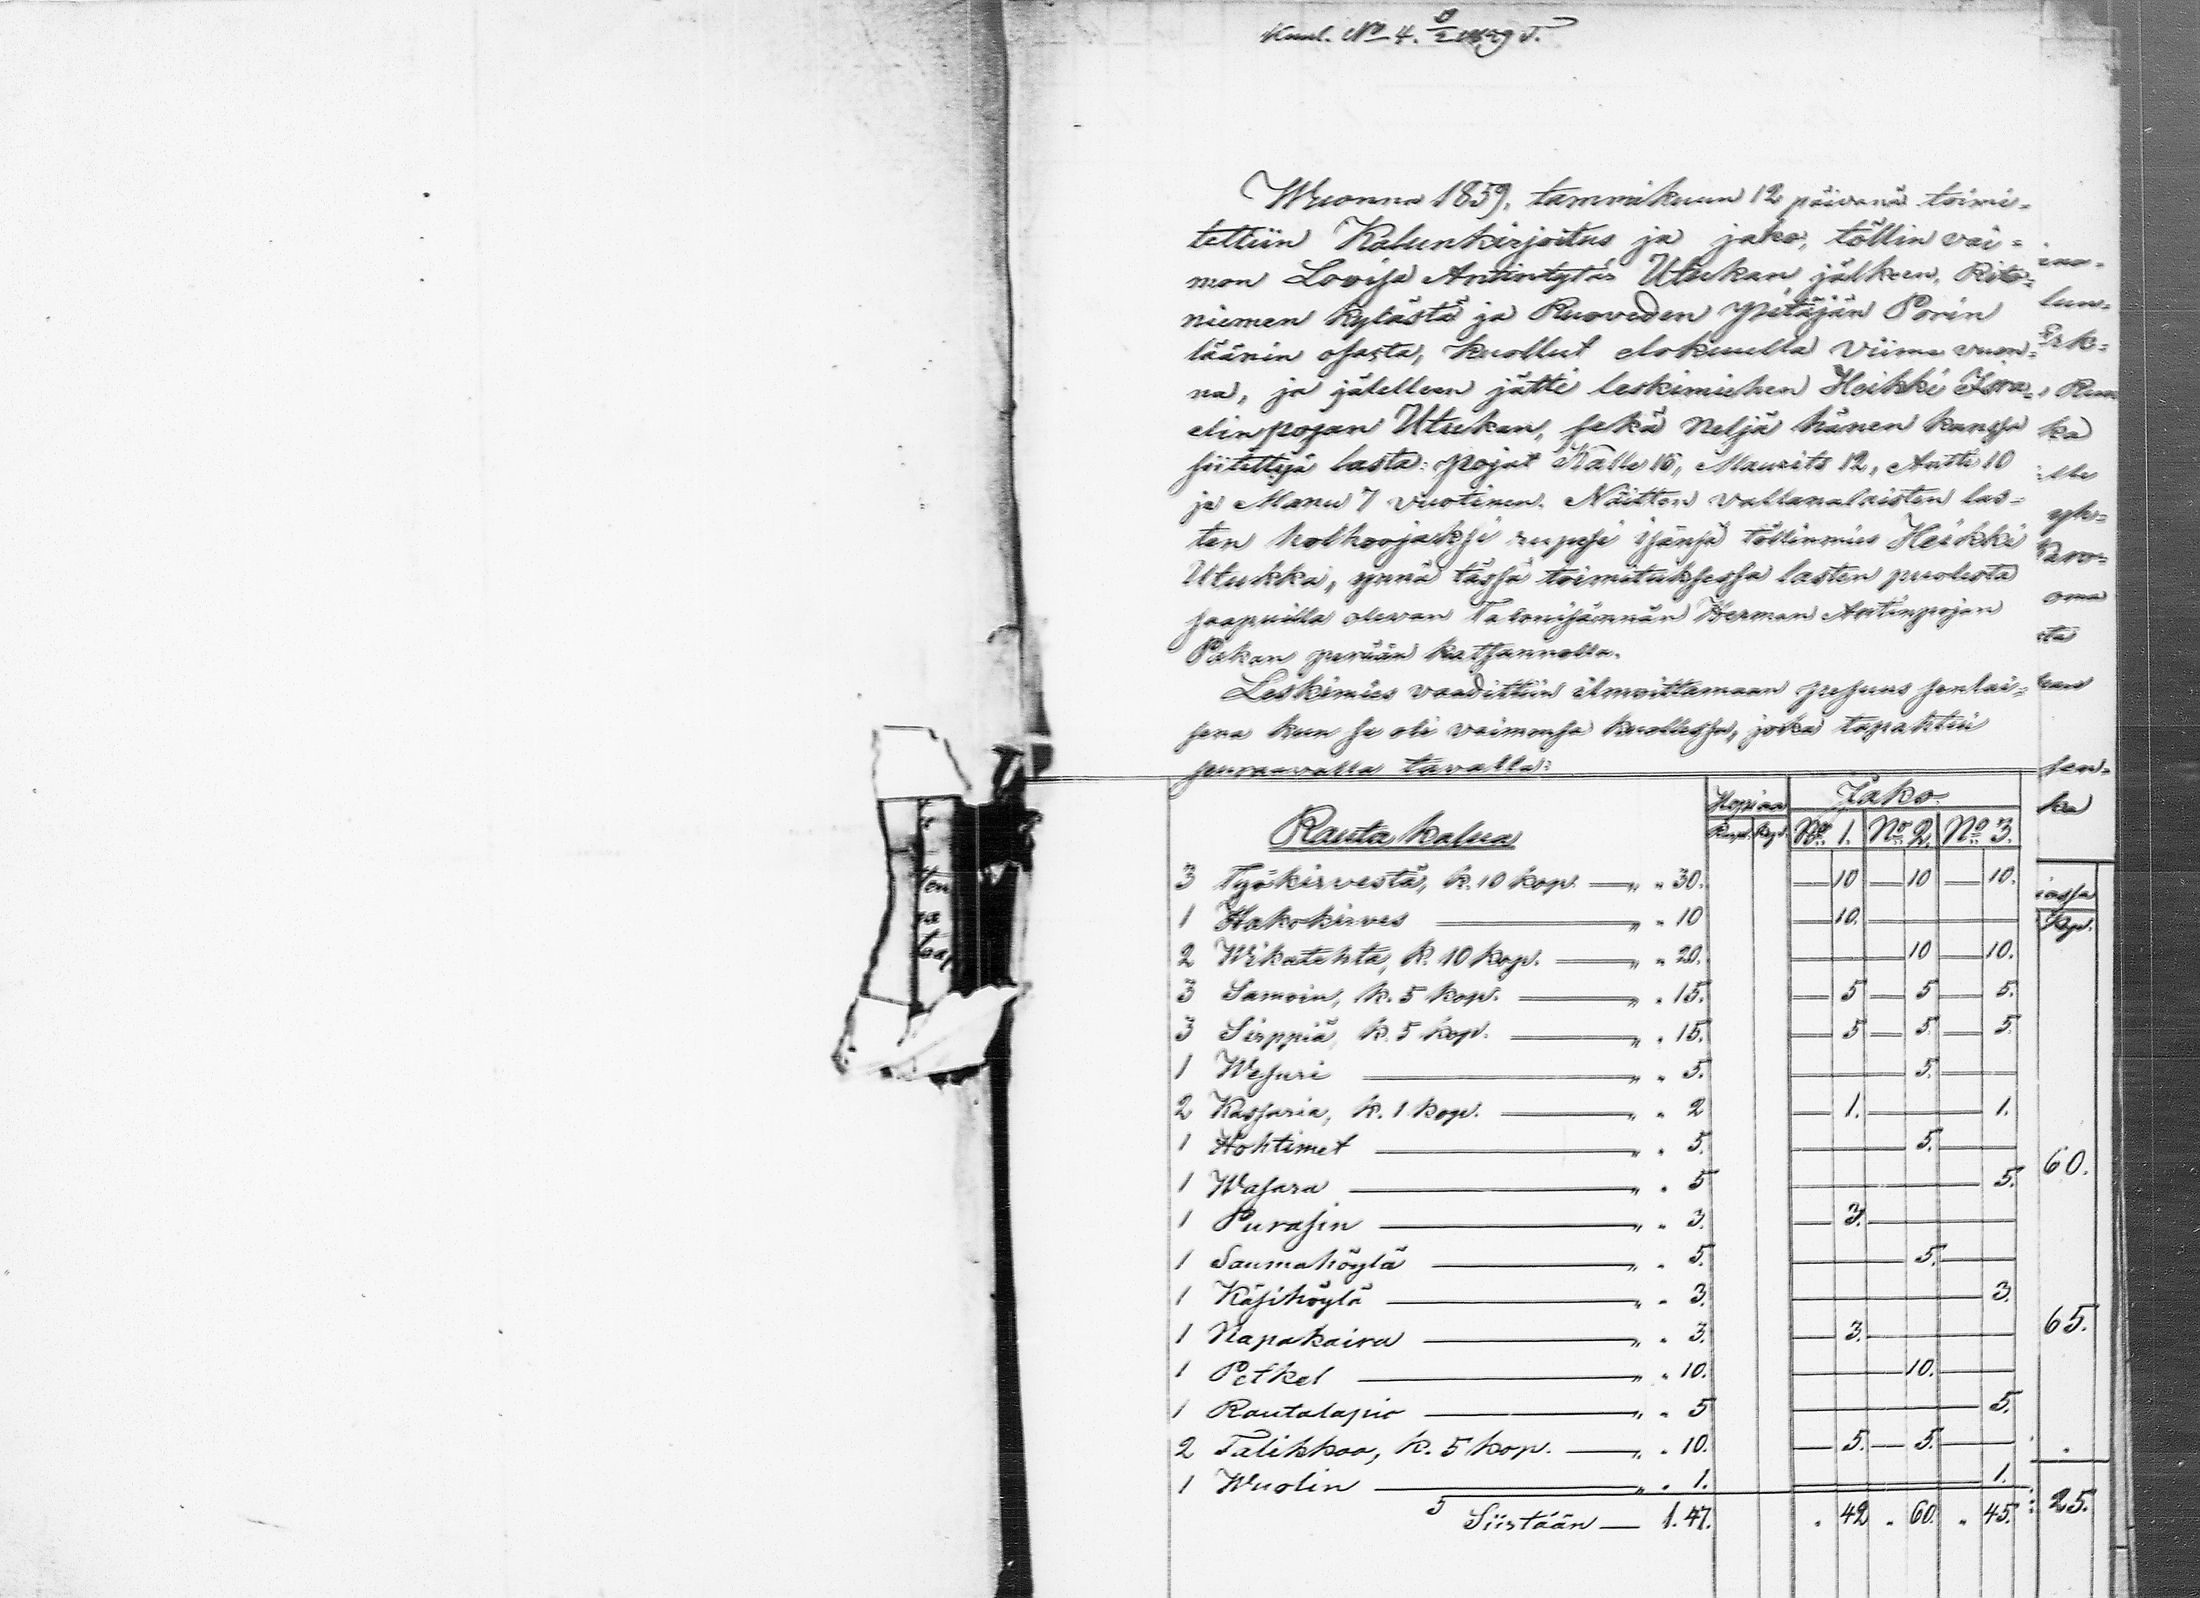 Wuonna 1859, tammikuun 12 päivänä toimi-
tettiin Kalunkirjoitus ja jako, töllin vai-
mon Lovisa Antintytär Utukan jälkeen, Rito-
niemen kylästä ja Ruoveden Pitäjän Porin
läänin osasta, kuollut elokuulla viime vuon-
na, ja jälelleen jätti leskimiehen Heikki Isra-
elinpojan Utukan, sekä neljä hänen kanssa
siitettyä lasta: pojat Kalle 16, Maurits 12, Antti 10
ja Manu 7 vuotinen. Näitten vallanalaisten las-
ten holhoojaksi rupesi isänsä töllinmies Heikki
Utukka, ynnä tässä toimituksessa lasten puolesta
saapuilla olevan Talonisännän Herman Antinpojan
Pekan perään katsannolla.
Leskimies vaadittiin ilmoittamaan pesuus senlai-
sena kun se oli vaimonsa kuollessa, joka tapahtui
seuraavalla tavalla:
Hopiaa Jako.
Rauta kalua Rupl. Kop. No 1. No 2. No 3.
3 Työkirvestä, k. 10 kop. — „ „ 30. — 10 — 10 — 10.
1 Hakokirves — „ „ 10 — 10. —
2 Wikatehta, k. 10 kop. — „ „ 20. — 10 — 10.
3 Samoin, k. 5 kop. — „ „ 15. — 5 — 5 — 5.
3 Sirppiä, k. 5 kop. — „ „ 15. — 5 — 5. — 5.
1 Wesuri — „ „ 5. — 5. —
2 Kassaria, k. 1 kop. — „ „ 2 — 1. — 1.
1 Hohtimet — „ „ 5. — 5. —
1 Wasara — „ „ 5 — 5.
1 Purasin — „ „ 3. — 3. —
1 Saumahöylä — „ „ 5. — 5. —
1 Käsihöylä — „ „ 3. — 3.
1 Napakaira — „ „ 3. — 3. —
1 Petkel — „ „ 10. — 10. —
1 Rautalapio — „ „ 5 — 5.
2 Talikkoo, k. 5 kop. — „ „ 10. — 5. — 5. —
1 Wuolin — „ „ 1. — 1.
Siirtään — 1.47. „ 42 „ 60. „ 45.
ka
oma
ka
Kop.
60.
65.
25.